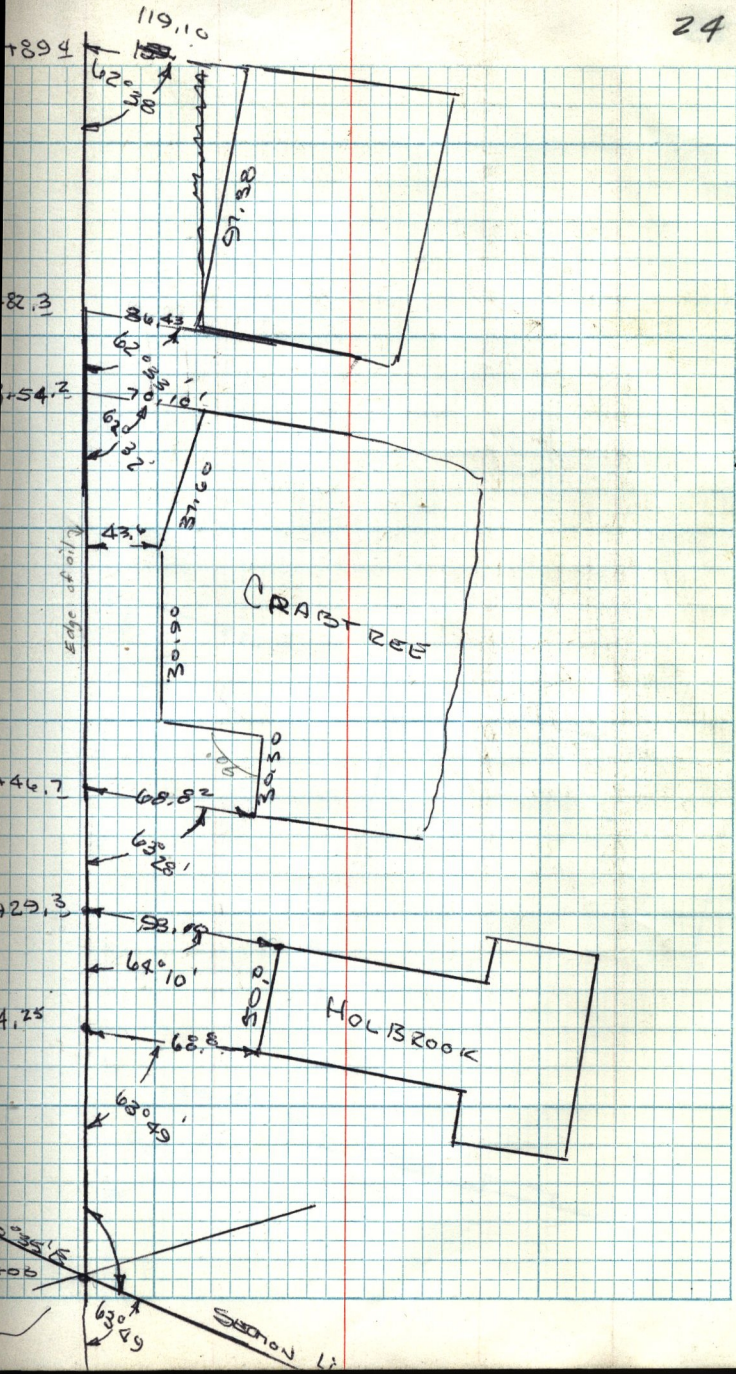 24
119.10
+894
62° 30
97.38
82.3
86.43
62° 33'
+54.2
70.10'
62° 32'
37.60
43.6
Edge of oil
CRABTREE
30.90
90°
30.30
+46.7
68.82
63° 28'
+29.3
93.10
64° 10'
50.0
HOLBROOK
4.25
68.8
63° 49'
°35'E
+03
63° 49
SECTION Li